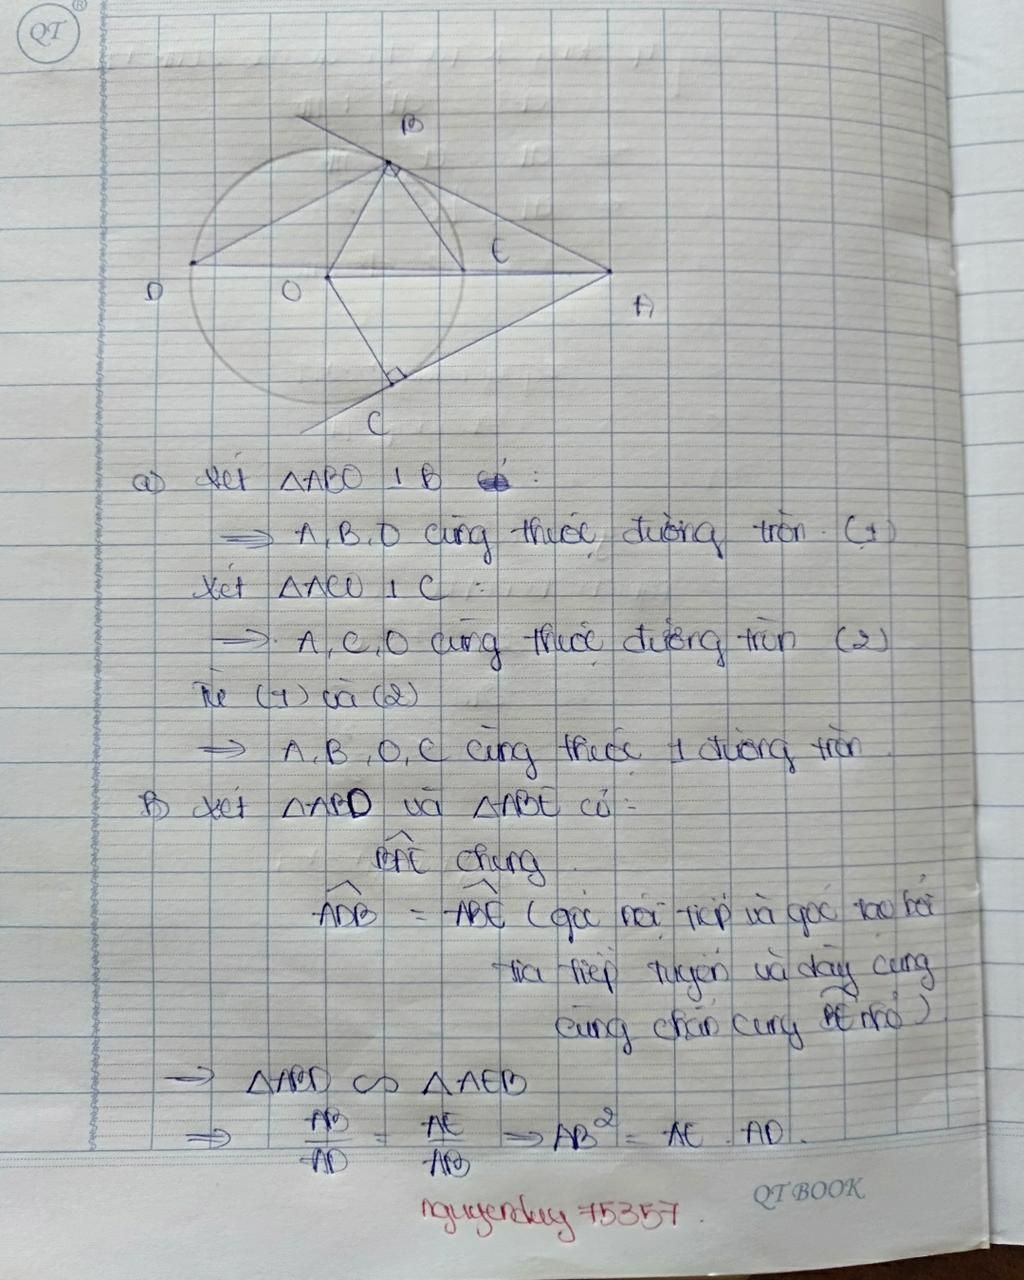 QT
B
E
D
O
A
C
a) Xét △ABO ⊥ B có :
⇒ A, B, O cùng thuộc đường tròn. (1)
Xét △ACO ⊥ C :
⇒ A, C, O cùng thuộc đường tròn (2)
Từ (1) và (2)
⇒ A, B, O, C cùng thuộc 1 đường tròn
B) Xét △ABD và △ABE có :
BAE chung
ADB = ABE (góc nội tiếp và góc tạo bởi
tia tiếp tuyến và dây cung
cùng chắn cung BE nhỏ)
→ △ABD ∽ △AEB
⇒ AB/AD = AE/AB ⇒ AB² = AE . AD.
QT BOOK
nguyenduy 75357.